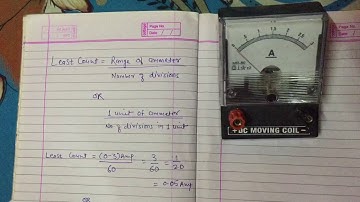 Page No.
Date
Least Count = Range of ammeter
Number of divisions
OR
1 unit of ammeter
No of divisions in 1 unit
Least Count = (0-3) Amp = 3 = 1
60 60 20
= 0.05 Amp
OR
0 1 2 3
A
+ DC MOVING COIL -